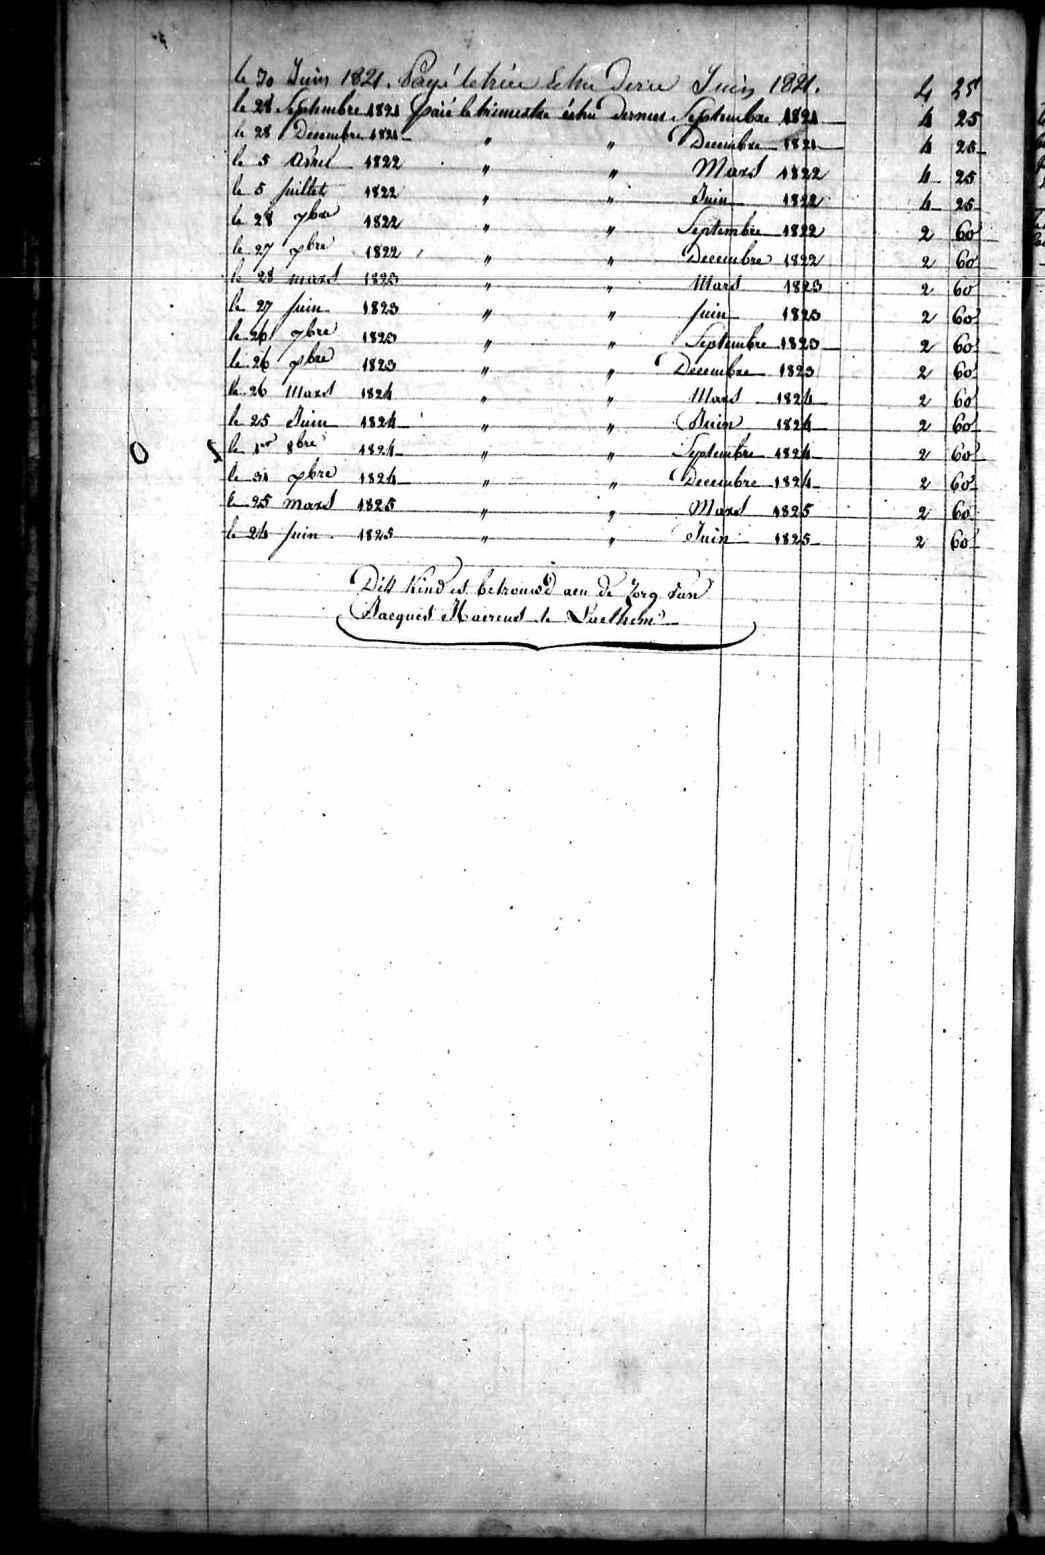 le 30 Juin 1821. Payé le trim Echu Dern Juin 1821. 4 25
le 28 Septembre 1821 payé le trimestre échu dernier Septembre 1821 4 25
le 28 Decembre 1821 " " Decembre 1821 4 25
le 5 Avril 1822 " " Mars 1822 4 25
le 5 Juillet 1822 " " Juin 1822 4 25
le 28 7bre 1822 " " Septembre 1822 2 60
le 27 xbre 1822 " " Decembre 1822 2 60
le 28 mars 1823 " " Mars 1823 2 60
le 27 Juin 1823 " " Juin 1823 2 60
le 26 7bre 1823 " " Septembre 1823 2 60
le 26 xbre 1823 " " Decembre 1823 2 60
le 26 Mars 1824 " " Mars 1824 2 60
le 25 Juin 1824 " " Juin 1824 2 60
le 1er 8bre 1824 " " Septembre 1824 2 60
le 31 xbre 1824 " " Decembre 1824 2 60
le 25 mars 1825 " " Mars 1825 2 60
le 24 Juin 1825 " " Juin 1825 2 60
Dits Kind is betrouwd aen de Zorg van
Jacques Maerens te